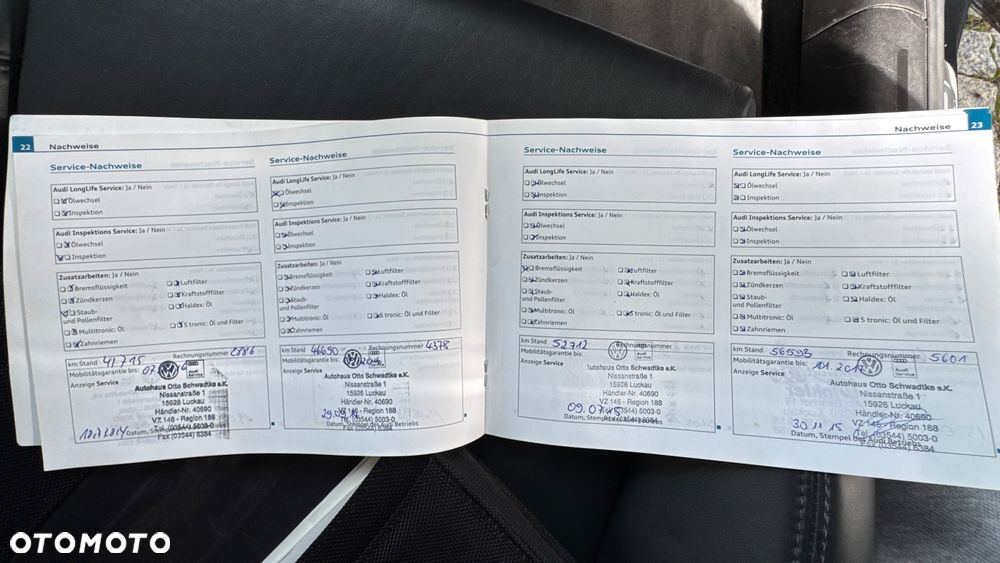 22 Nachweise
Service-Nachweise
Audi LongLife Service: Ja / Nein
Ölwechsel
Inspektion
Audi Inspektions Service: Ja / Nein
Ölwechsel
Inspektion
Zusatzarbeiten: Ja / Nein
Bremsflüssigkeit
Luftfilter
Zündkerzen
Kraftstofffilter
Staub-
und Pollenfilter
Haldex: Öl
Multitronic: Öl
S tronic: Öl und Filter
Zahnriemen
km Stand 41715 Rechnungsnummer 2886
Mobilitätsgarantie bis: 07.
Anzeige Service
Autohaus Otto Schwadtke e.K.
Nissanstraße 1
15926 Luckau
Händler-Nr. 40690
VZ 146 - Region 188
Tel. (03544) 5003-0
Fax (03544) 6384
10.7.2014 Datum, Stempel des Audi Betriebs
Service-Nachweise
Audi LongLife Service: Ja / Nein
Ölwechsel
Inspektion
Audi Inspektions Service: Ja / Nein
Ölwechsel
Inspektion
Zusatzarbeiten: Ja / Nein
Bremsflüssigkeit
Luftfilter
Zündkerzen
Kraftstofffilter
Staub-
und Pollenfilter
Haldex: Öl
Multitronic: Öl
S tronic: Öl und Filter
Zahnriemen
km Stand 46690 Rechnungsnummer 4378
Mobilitätsgarantie bis:
Anzeige Service
Autohaus Otto Schwadtke e.K.
Nissanstraße 1
15926 Luckau
Händler-Nr. 40690
VZ 146 - Region 188
Tel. (03544) 5003-0
Datum, Stempel des Audi Betriebs
Fax (03544) 6384
Nachweise 23
Service-Nachweise
Audi LongLife Service: Ja / Nein
Ölwechsel
Inspektion
Audi Inspektions Service: Ja / Nein
Ölwechsel
Inspektion
Zusatzarbeiten: Ja / Nein
Bremsflüssigkeit
Luftfilter
Zündkerzen
Kraftstofffilter
Staub-
und Pollenfilter
Haldex: Öl
Multitronic: Öl
S tronic: Öl und Filter
Zahnriemen
km Stand 52712 Rechnungsnummer
Mobilitätsgarantie bis:
Anzeige Service
Autohaus Otto Schwadtke e.K.
Nissanstraße 1
15926 Luckau
Händler-Nr. 40690
VZ 146 - Region 188
09.07.15 (03544) 5003-0
Datum, Stempel
Service-Nachweise
Audi LongLife Service: Ja / Nein
Ölwechsel
Inspektion
Audi Inspektions Service: Ja / Nein
Ölwechsel
Inspektion
Zusatzarbeiten: Ja / Nein
Bremsflüssigkeit
Luftfilter
Zündkerzen
Kraftstofffilter
Staub-
und Pollenfilter
Haldex: Öl
Multitronic: Öl
S tronic: Öl und Filter
Zahnriemen
km Stand 56593 Rechnungsnummer 5601
Mobilitätsgarantie bis: 11.2017
Anzeige Service
Audi
Service
Autohaus Otto Schwadtke e.K.
Nissanstraße 1
15926 Luckau
Händler-Nr. 40690
VZ 146 - Region 188
30.11.15 Tel. (03544) 5003-0
Datum, Stempel des Audi Betriebs
Fax (03544) 6384
OTOMOTO